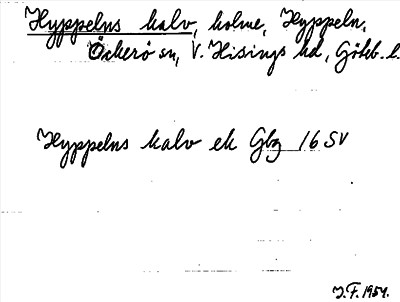 Hyppelns kalv, holme, Hyppeln,
Öckerö sn, V. Hisings hd, Göteb. l.
Hyppelns kalv ek Gbg 16 SV
J.F. 1954.